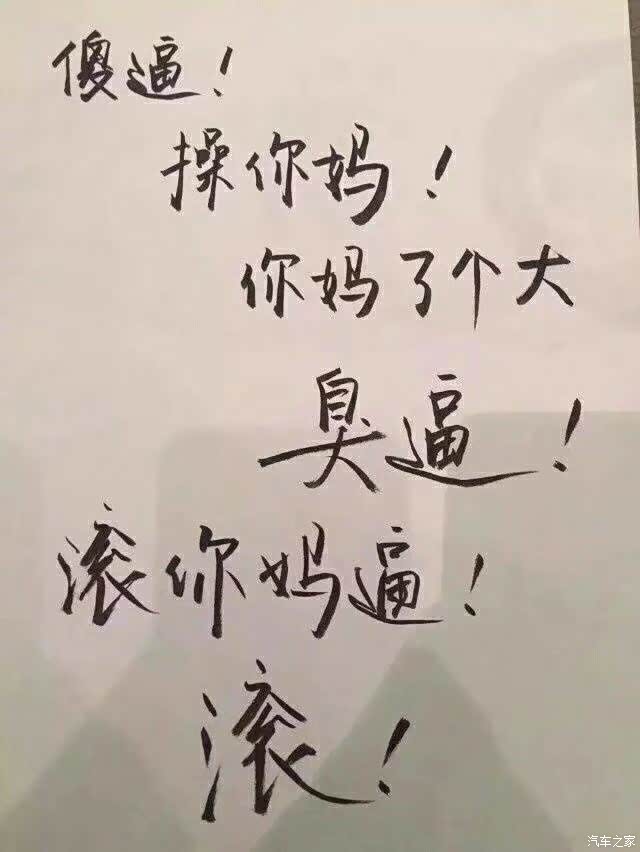 傻逼！
操你妈！
你妈了个大
臭逼！
滚你妈逼！
滚！
汽车之家